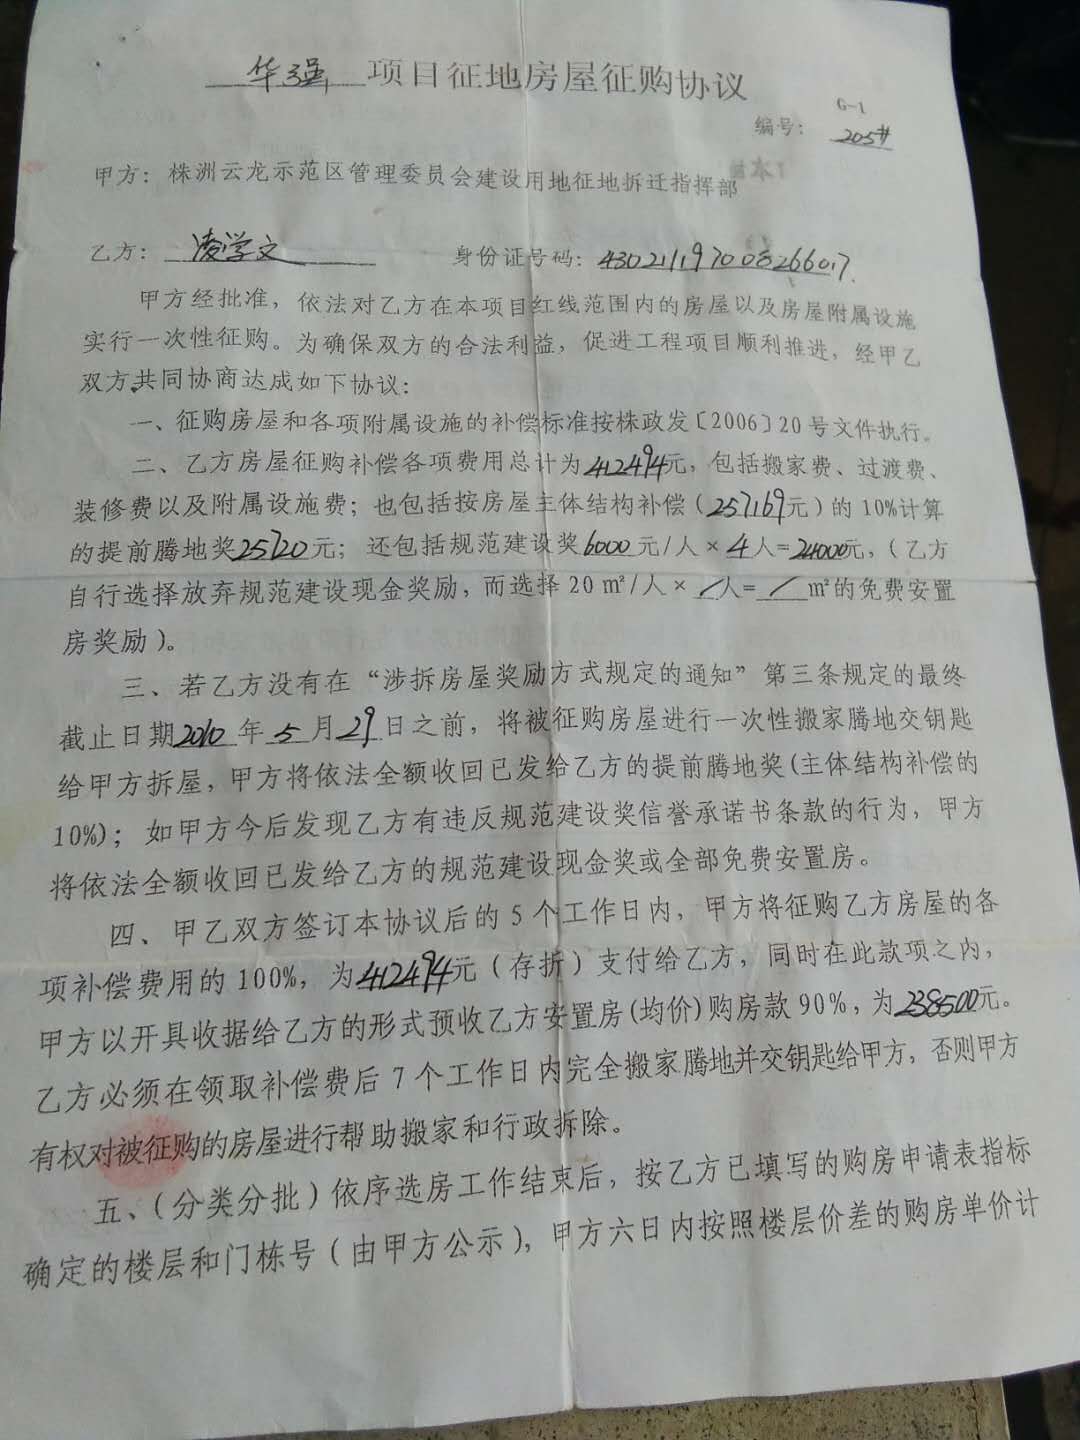 华强 项目征地房屋征购协议
G-1
编号: 205#
甲方: 株洲云龙示范区管理委员会建设用地征地拆迁指挥部
乙方: 凌学文 身份证号码: 430211197008266017
甲方经批准，依法对乙方在本项目红线范围内的房屋以及房屋附属设施
实行一次性征购。为确保双方的合法利益，促进工程项目顺利推进，经甲乙
双方共同协商达成如下协议:
一、征购房屋和各项附属设施的补偿标准按株政发〔2006〕20号文件执行。
二、乙方房屋征购补偿各项费用总计为412494元，包括搬家费、过渡费、
装修费以及附属设施费；也包括按房屋主体结构补偿（257169元）的10%计算
的提前腾地奖25720元；还包括规范建设奖6000元/人×4人=24000元，（乙方
自行选择放弃规范建设现金奖励，而选择20㎡/人×/人=/㎡的免费安置
房奖励）。
三、若乙方没有在“涉拆房屋奖励方式规定的通知”第三条规定的最终
截止日期2010年5月29日之前，将被征购房屋进行一次性搬家腾地交钥匙
给甲方拆屋，甲方将依法全额收回已发给乙方的提前腾地奖(主体结构补偿的
10%)；如甲方今后发现乙方有违反规范建设奖信誉承诺书条款的行为，甲方
将依法全额收回已发给乙方的规范建设现金奖或全部免费安置房。
四、甲乙双方签订本协议后的5个工作日内，甲方将征购乙方房屋的各
项补偿费用的100%，为412494元（存折）支付给乙方，同时在此款项之内，
甲方以开具收据给乙方的形式预收乙方安置房(均价)购房款90%，为238500元。
乙方必须在领取补偿费后7个工作日内完全搬家腾地并交钥匙给甲方，否则甲方
有权对被征购的房屋进行帮助搬家和行政拆除。
五、（分类分批）依序选房工作结束后，按乙方已填写的购房申请表指标
确定的楼层和门栋号（由甲方公示），甲方六日内按照楼层价差的购房单价计